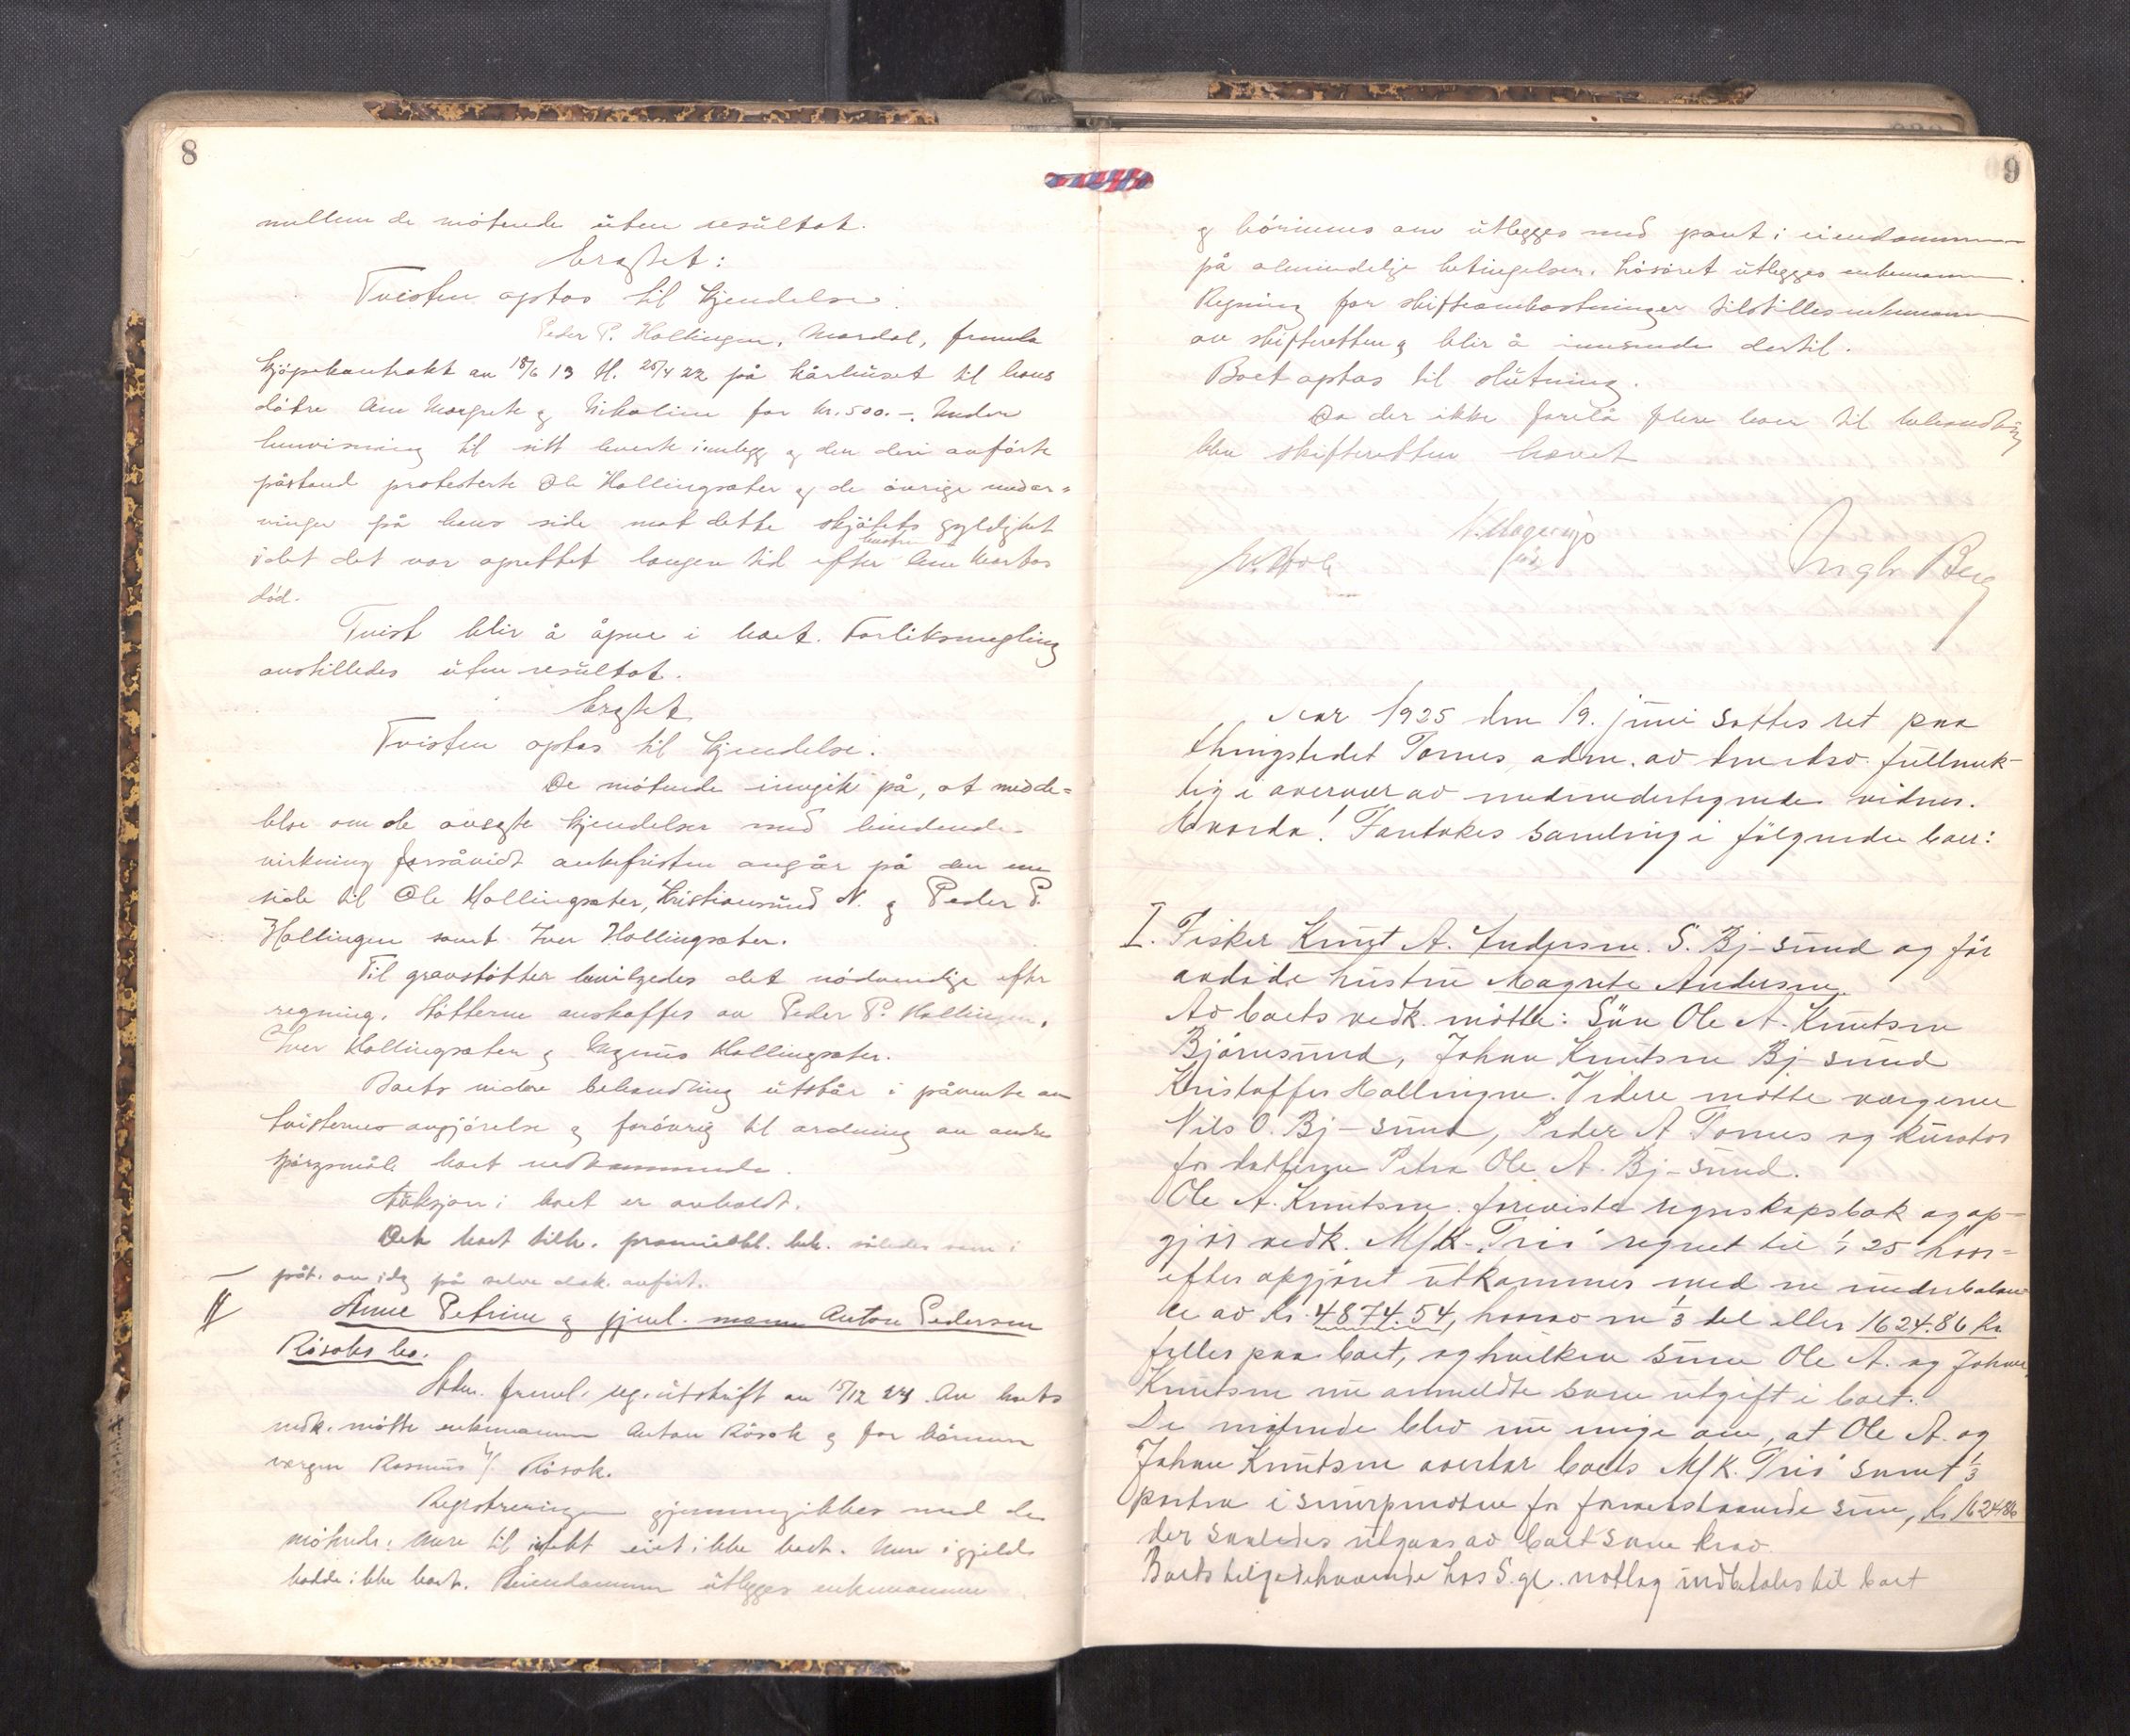 8
mellem de møtende uten resultat.
Tvisten optas til kjendelse.
Peder P. Hallingen, Mordal, fremla
kjøpekontrakt av 18/6 13 tl. 25/4 22 på kårhuset til hans
døtre Ane Margrete og Nikoline for kr. 500.-. Under
henvisning til sitt leverte innlegg og den deri anførte
påstand protesterte Ole Hallingsæter og de øvrige medar-
vinger på hans side mot dette skjøtets gyldighet
idet det var oprettet langen tid efter hustru Ane Martas
død.
Tvist blir å åpne i boet. Forliksmegling
anstilledes uten resultat.
Tvisten optas til kjendelse.
De møtende inngik på, at medde-
lelse om de avsagte kjendelser med bindende
virkning forsåvidt ankefristen angår på den ene
side til Ole Hallingsæter, Kristiansund N. og Peder P.
Hallingen samt Iver Hallingsæter.
Til gravstøtter bevilgedes det nødvendige efter
regning. Støtterne anskaffes av Peder P. Hallingen,
Iver Hallingsæter og Magnus Hallingsæter.
Boets videre behandling utstår i påvente av
tvisternes avgjørelse og forøvrig til ordning av andre
spørgsmål boet vedkommende.
Auksjon i boet er avholdt.
Det boet tilh. således som i
påt. av idag på selve dok. anført.
II
Anne Petrine og gjenl. mann Anton Pedersen
Rösoks bo.
Adm. freml. reg. utskrift av 15/12 24. Av boets
vedk. møtte enkemannen Anton Rösok og for børnene
vergen Rasmus Rösok.
Registreringen gjennemgikkes med de
møtende. Mere til intekt eiet ikke boet. Mere i gjeld
hadde ikke boet. Eiendommen utlegges enkemannen
9
og børnenes arv utlegges med pant i eiendommen
på almindelige betingelser. Løsøret utlegges enkemann.
Regning for skifteomkostninger tilstilles enkemann
av skifteretten og blir å innsende dertil.
Boet optas til slutning.
Da der ikke forelå flere boer til behandling
blev skifteretten hævet
Ingb. Berg
Aar 1925 den 19. juni sattes ret paa
thingstedet Tornes, adm. av fuldmek-
tig i overvær av medundertegnede vidner.
Hvorda! Foretokes samling i følgende boer:
I. Fisker Knut A. Andersen. S. Bj-sund og før
avdøde hustru Magrete Andersen.
Av boets vedk. møtte: Søn Ole A. Knutsen
Bjørnsund, Johan Knutsen Bj-sund
Kristoffer Hallingen. Videre møtte vergerne
Nils O. Bj-sund, Peder A Tornes og kurator
for datteren Petra Ole A. Bj-sund.
Ole A. Knutsen foreviste regnskapsbok og op-
gjør vedk. M/K "Tris" regnet til 1/1 25 hvor-
efter opgjøret utkommer med en underbalan-
ce av Kr. 4874.54, hvorav en 1/3 del eller 1624.86 Kr
falles paa boet, og hvilken sum Ole A. og Johan
Knutsen nu anmeldte som utgift i boet.
De møtende blev nu enige om, at Ole A. og
Johan Knutsen overtar boets M/K. "Tris" samt 1/3
parten i snurpenoten for foranstaaende sum, Kr. 1624.86
der saaledes utgaar av boet som krav.
Boets tilgodehavende hos S. gl. notlag indbetales til boet